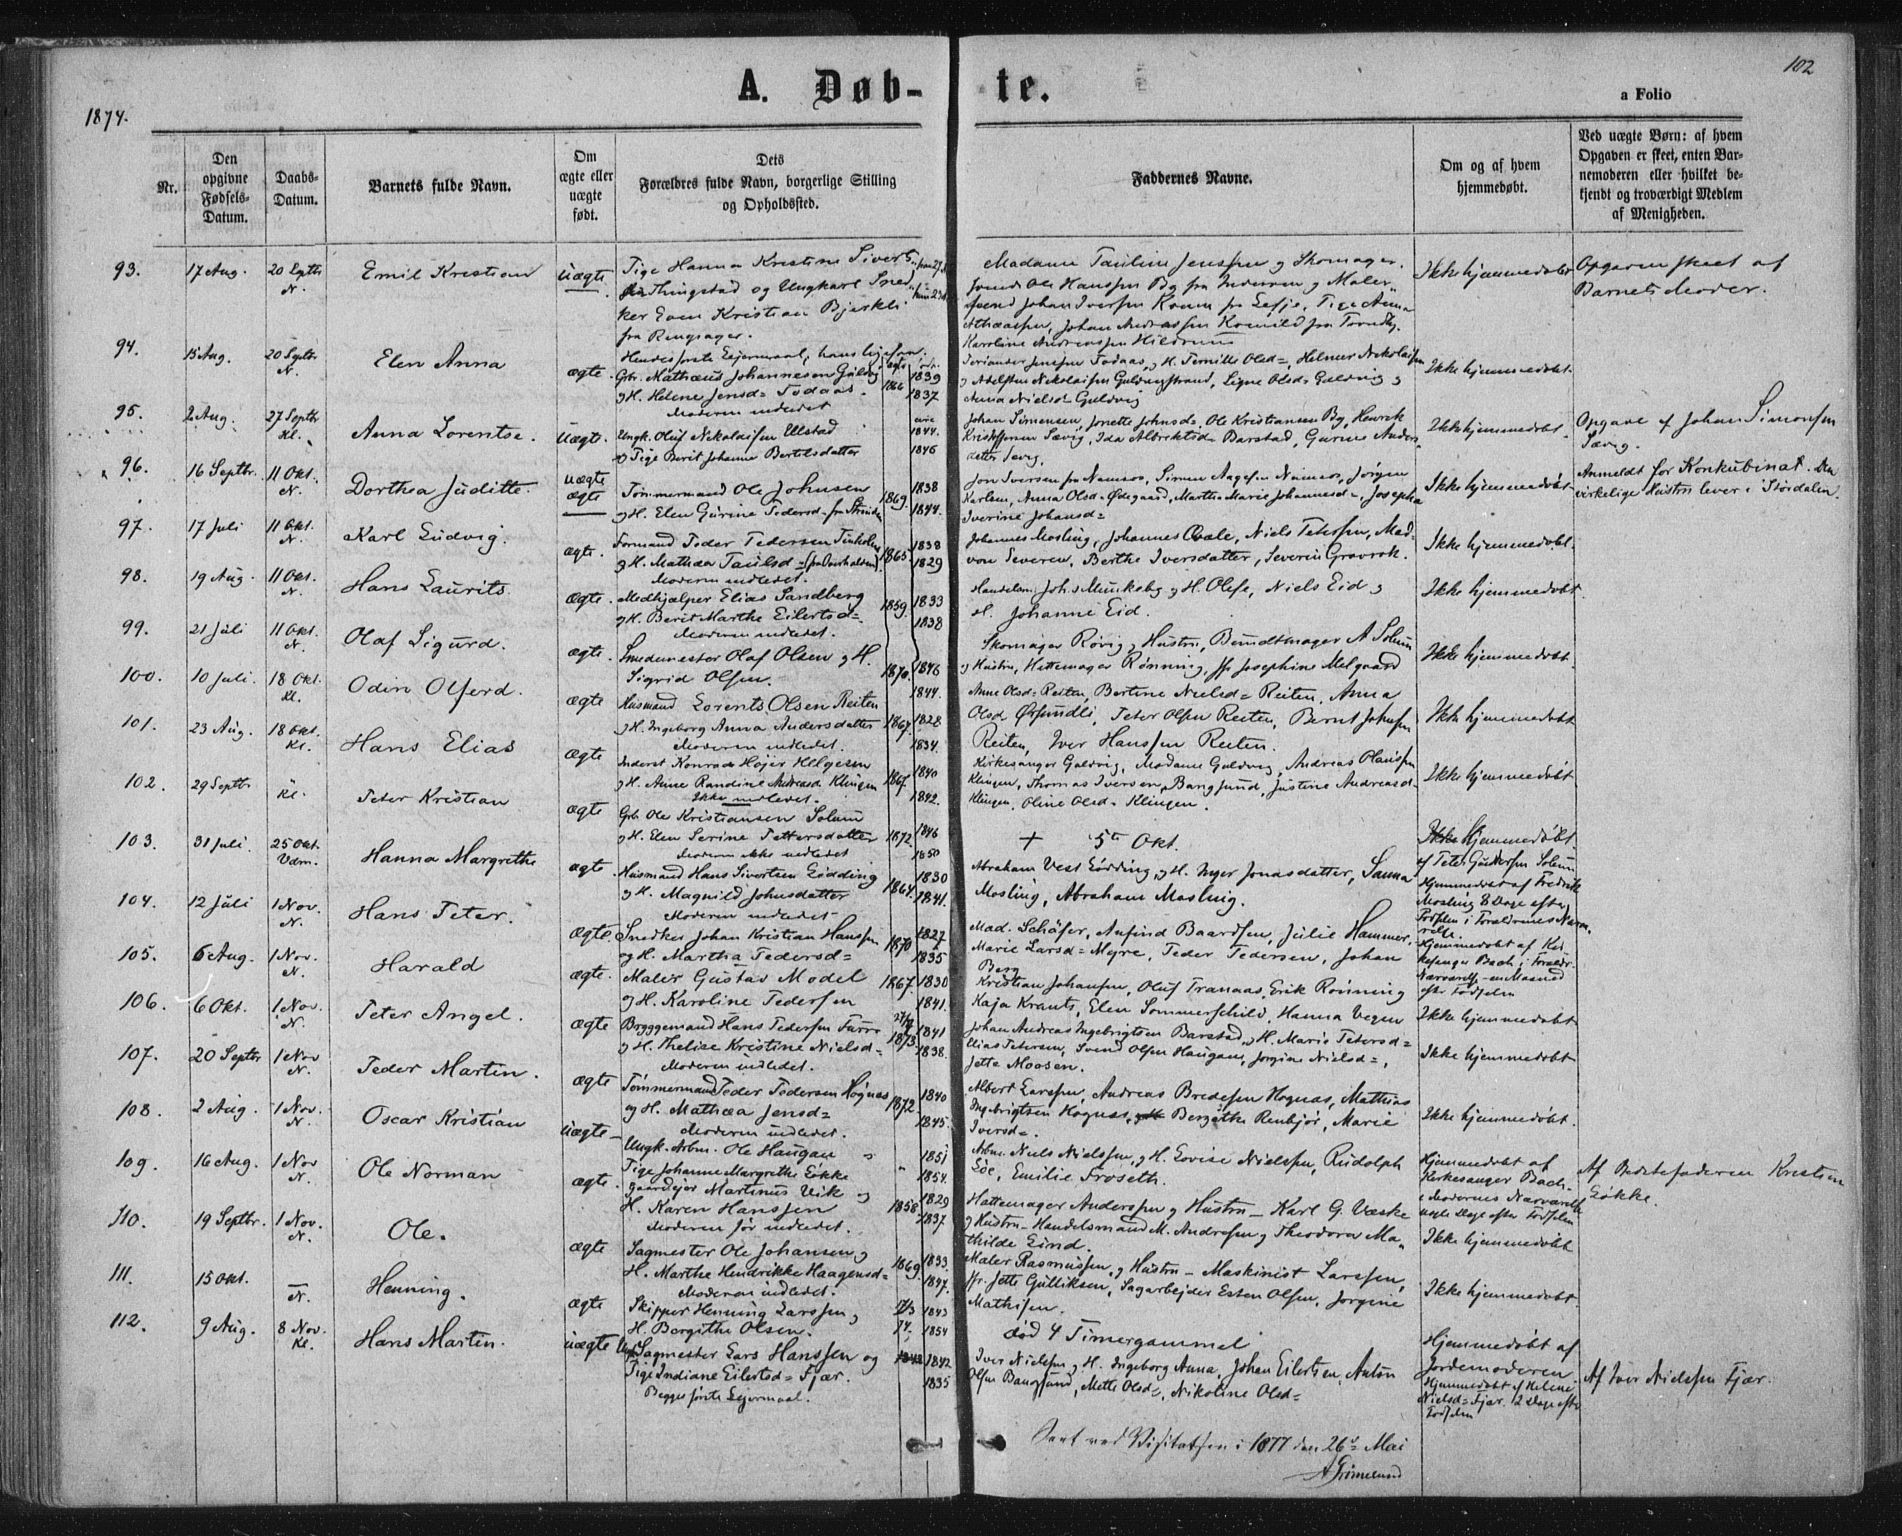 102
A. Døb-
te.
a Folio
1874.
Nr.
Den
opgivne
Fødsels-
Datum.
Daabs-
Datum.
Barnets fulde Navn.
Om
ægte eller
uægte
født.
Dets
Forældres fulde Navn, borgerlige Stilling
og Opholdssted.
Faddernes Navne.
Om og af hvem
hjemmedøbt.
Ved uægte Børn: af hvem
Opgaven er skeet, enten Bar-
nemoderen eller hvilket be-
kjendt og troværdigt Medlem
af Menigheden.
93. 17 Aug. 20 Septbr N. Emil Kristian uægte
Pige Hanna Kristine Siverts
Thingstad og Ungkarl Sned-
ker Even Kristian Bjerkli
fra Ringsager.
Madame Pauline Jenssen og Skomager-
svend Ole Hanssen By fra Inderøen og Maler-
svend Johan Iversen
Johan Andreassen
Karoline Andreassen Hildrum
Ikke hjemmedøbt
Opgaven skeet af
Barnets Moder.
94. 15 Aug. 20 Septbr. N. Elen Anna ægte.
Gbr. Mathæus Johannesen Guldvig
og H. Helene Jensd= Todaas.
Moderen indledet
1866 1839
1837
Jenssen Todaas, H. Pernille Olsd=, Helmer Nikolaisen
og Adelsten Nikolaisen Guldvigstrand, Signe Olsd= Guldvig og
Anna Nielsd= Guldvig
Ikke hjemmedøbt.
95. 2 Aug. 27 Septbr Kl. Anna Lorentse. uægte.
Ungk. Oluf Nikolaisen Ulstad
og Pige Berit Johanna Bertelsdatter
1844.
1846
Johan Simensen, Jonette Johnsd=, Ole Kristiansen By, Henrik
Kristoffersen Sævig, Ida Albriktsd= Barstad, Gurine Anders
datter Sevig.
Ikke hjemmedøbt.
Opgave af Johan Simonsen
Sævig.
96. 16 Septbr. 11 Okt. N. Dorthea Juditte. uægte
ægte
Tømmermand Ole Johnsen
og H. Elen Gurine Pedersd= fra Strinden
1869. 1838
1844.
Jon Iversen fra Namsos, Simen Aagesen Namsos, Jørgen
Karlsen, Anna Olsd= Ødegaard, Martha Marie Johannesd=, Josepha
Iverine Johansd=
Ikke hjemmedøbt.
Anmeldt for Konkubinat. Den
virkelige Hustru lever i Stordalen.
97. 17 Juli 11 Okt. N. Karl Ludvig. ægte.
Formand Peder Pedersen
og H. Mathea Paulsd= (fra Overhalden).
Moderen indledet.
1865 1838
1829
Johannes Mosling, Johannes Qvale, Niels Petersen, Mad=
von Severen, Berthe Iversdatter, Severin Gravrok.
Ikke hjemmedøbt.
98. 19 Aug. 11 Okt. N. Hans Laurits ægte.
Medhjælper Elias Sandberg
og H. Berit Marthe Eilertsd=
Moderen indledet.
1859 1833
1838
Handelsm. Johs Munkeby og H. Oline, Niels Eid og
H. Johanne Eid.
Ikke hjemmedøbt.
99. 21 Juli 11 Okt. N. Olaf Sigurd. ægte.
Smedemester Olaf Olsen og H.
Sigrid Olsen.
1870. 1846
1844.
Skomager Røvig og Hustru, Bundtmager A Solum
og Hustru, Hattemager Rønning, Jfr Josephine Melgaard
Ikke hjemmedøbt.
100. 10 Juli. 18 Okt. Kl. Odin Olferd. ægte
Husmand Lorents Olsen Reiten
og H. Ingeborg Anna Andersdatter
Moderen indledet.
1867. 1828.
1834.
Anne Olsd= Reiten, Bertine Nielsd= Reiten, Anna
Olsd. Ørsundli, Peter Olsen Reiten, Bernt Johnsen
Reiten, Iver Hanssen Reiten.
Ikke hjemmedøbt
101. 23 Aug. 18 Okt. Kl. Hans Elias ægte
Inderst Konrad Højer Helgesen
og H. Anne Randine Andreasd. Klingen
Ikke indledet.
1867. 1840
1842.
Kirkesanger Guldvig, Madame Guldvig, Andreas Olaussen
Klingen, Thomas Iversen Bangsund, Justine Andreasd=
Klingen, Oline Olsd= Klingen.
Ikke hjemmedøbt
102. 29 Septbr Kl. Peter Kristian ægte
Gbr. Ole Kristiansen Solum
og H. Elen Serine Pettersdatter
Moderen ikke indledet
1872 1846
1850
+ 5te Okt.
Ikke hjemmedøbt.
af Peter Solum
103. 31 Juli. 25 Okt. Vdm. Hanna Margrethe ægte.
Husmand Hans Sivertsen Lødding
og H. Magnild Johnsdatter
Moderen indledet
1864. 1830
1841.
Abraham Vest Lødding, og H. Inger Jonasdatter, Sanna
Mosling, Abraham Mosling.
Hjemmedøbt af Fredrik
Mosling 8 Dage efter
Fødselen i Forældrenes Nærvæ-
relse.
104. 12 Juli 1 Nov. N. Hans Peter. ægte.
Snedker Johan Kristian Hanssen
og H. Martha Pedersd=
1870 1827
1835
Mad. Schøfer, Anfind Baardsen, Julie Hammer,
Marie Larsd= Myre, Peder Pedersen, Johan
Berg
Hjemmedøbt af Kir-
kesanger Bach, i Forældr.
Nærværelse en Maaned
efter Fødselen
105. 6 Aug. 1 Nov. N. Harald ægte.
Maler Gustav Model
og H. Karoline Pedersen
1867. 1830
1841.
Kristian Johansen, Oluf Tranaas, Erik Rønning
Kaja Krants, Elen Sommerschild, Hanna Vegen
Ikke hjemmedøbt
106. 6 Okt. 1 Nov. N. Peter Angel. ægte
Bryggemand Hans Pedersen Furre
og H. Thelise Kristine Nielsd=
Moderen indledet.
1873. 1841
1838.
Johan Andreas Ingebrigtsen Barstad, og H. Marie Petersd=
Elias Petersen, Svend Olsen Haugan, Jorgine Nielsd=,
Jette Moosen.
Ikke hjemmedøbt
107. 20 Septbr 1 Nov N. Peder Martin. ægte
Tømmermand Peder Pedersen Høgnes
og H. Mathea Jensd=
Moderen indledet.
1872. 1840
1845.
Albert Larssen, Andreas Bredesen Høgnas, Mathias
Ingebrigtsen Høgnas, Bergithe Renbjør, Marie
Iversd=.
Ikke hjemmedøbt.
108. 2 Aug. 1 Nov. N. Oscar Kristian uægte
Ungk. Arbm. Ole Haugan og
Pige Johanne Margrethe Løkke
1851
1854.
Arbm. Niels Nielssen, og H. Lovise Nielssen, Rudolph
Løe, Emilie Froseth.
Hjemmedøbt af
Kirkesanger Bach
i Moderens Nærværelse
nogle Dage efter Fødselen
Af Bedstefaderen Kristen
Løkke.
109. 16 Aug. 1 Nov N. Ole Norman ægte.
Gaardejer Martinus Vik og
H. Karen Hanssen
Moderen før indledet.
1858 1829
1837.
Hattemager Anderssen og Hustru - Karl G. Væske
og Hustru - Handelsmand M. Andresen og Theodora Ma-
thilde Lund.
Ikke hjemmedøbt
110. 19 Septbr. 1 Nov. N. Ole. ægte
Sagmester Ole Johansen og
H. Marthe Hendrikke Haagensd=
Moderen indledet.
1869. 1833.
1847.
Maler Rasmussen og Hustru - Maskinist Larssen,
Jfr. Jette Gulliksen, Sagarbejder Esten Olsen, Jorgine
Mathisen.
Ikke hjemmedøbt.
111. 15 Okt. — N. Henning. ægte
Skipper Henning Larssen og
H. Bergithe Olsen.
7/3 74. 1843
1854
død 4 Timer gammel
Hjemmedøbt af
Jordemoderen.
112. 9 Aug. 8 Nov. Kl. Hans Martin. uægte
Sagmester Lars Hanssen og
Pige Indiane Eilertsd= Fjær.
Begges første Lejermaal.
1842.
1835
Iver Nielsen, og H. Ingeborg Anna, Johan Eilertsen, Anton
Olsen Bangsund, Mette Olsd=, Nikoline Olsd=
Hjemmedøbt af Helene
Nielsd= Fjær. 12 Dage efter
Fødselen
Af Iver Nielssen Fjær.
Seet ved Visitatsen i 1877 den 26de Mai
A Grimelund